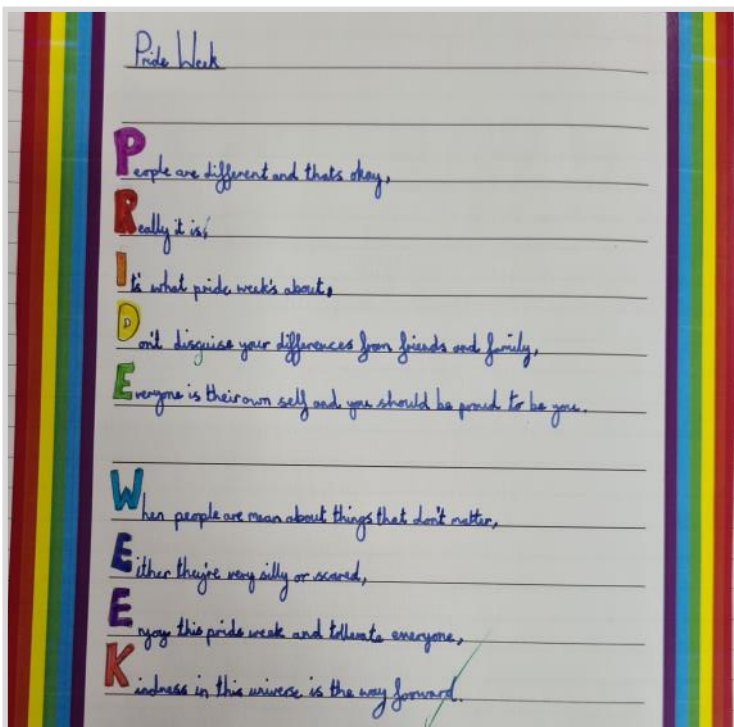 Pride Week
People are different and thats okay,
Really it is,
It's what pride week's about,
Don't disguise your differences from friends and family,
Everyone is their own self and you should be proud to be you.
When people are mean about things that don't matter,
Either they're very silly or scared,
Enjoy this pride week and tollerate everyone,
Kindness in this universe is the way forward.